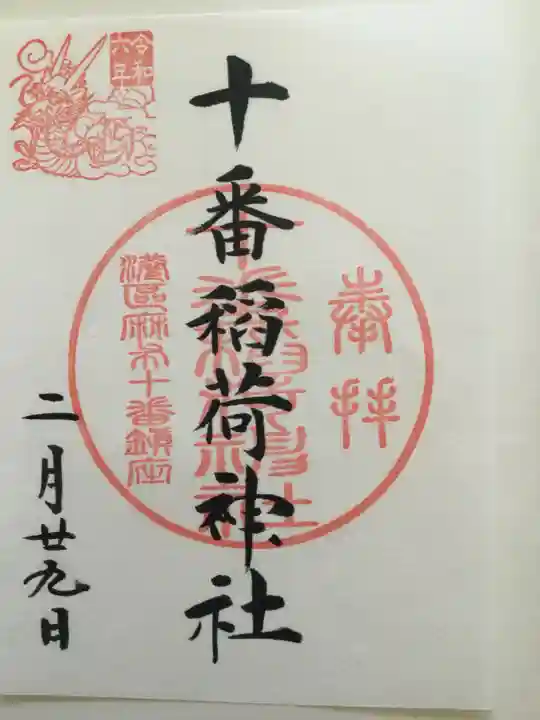 奉拝
十番稲荷神社
港區麻布十番鎮座
令和
六年
二月廿九日